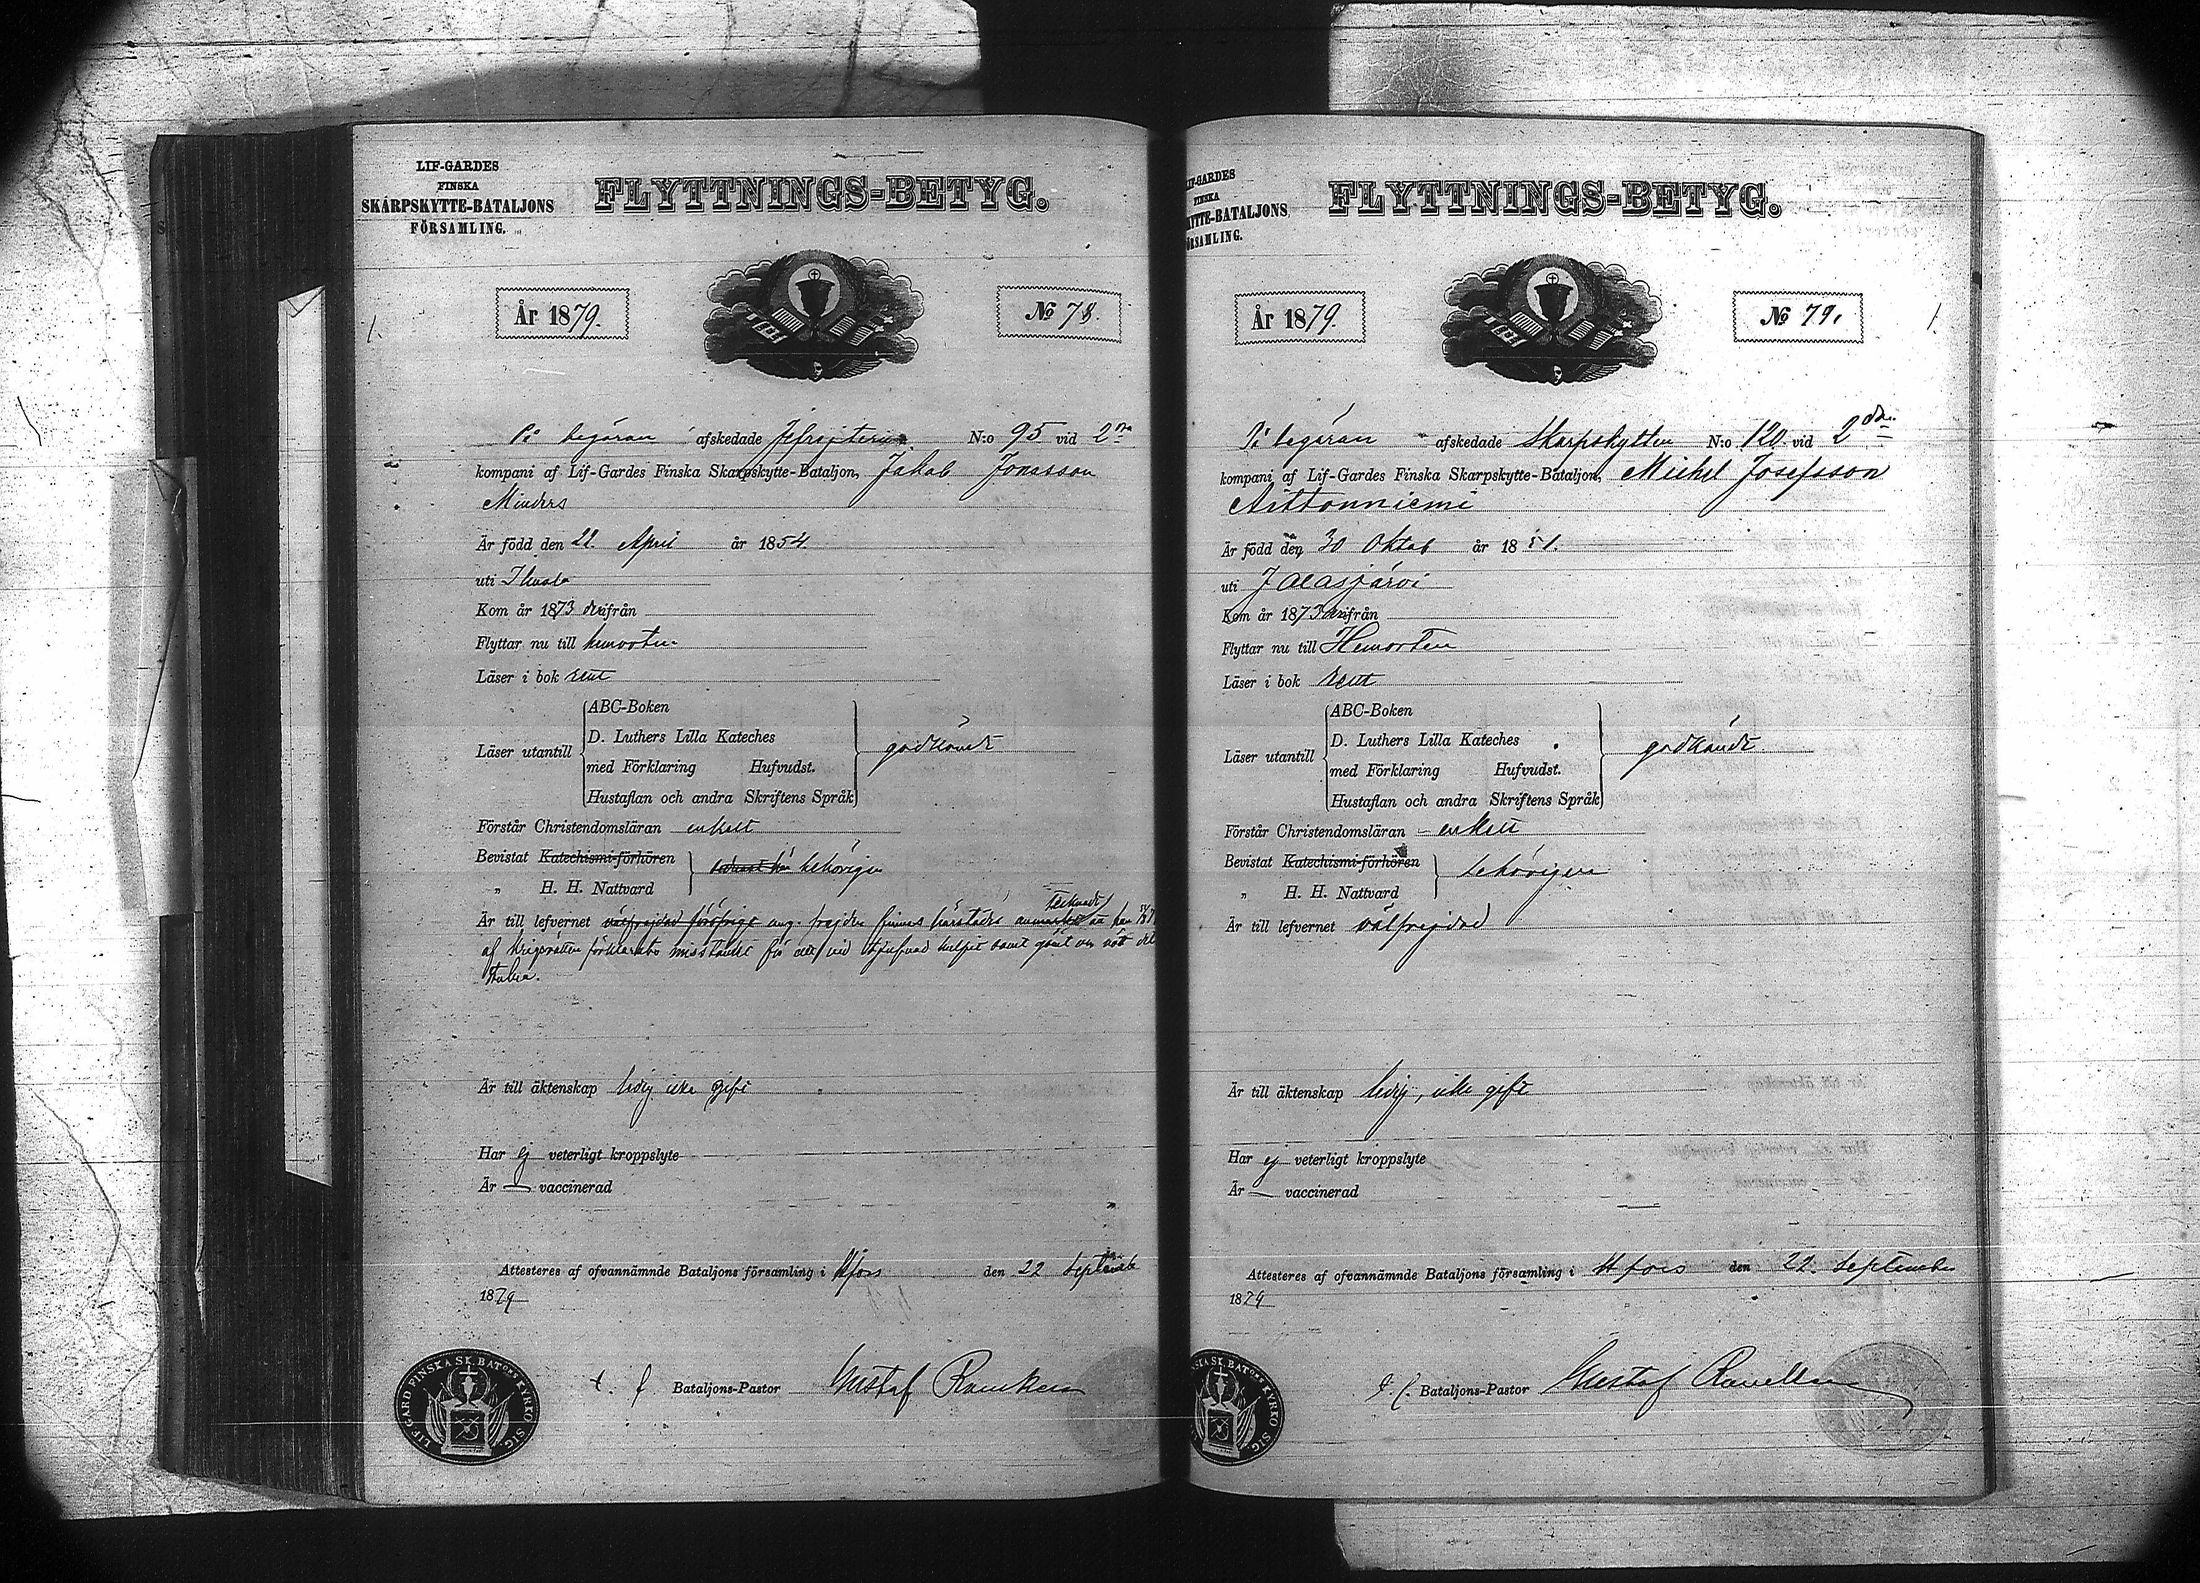 LIF-GARDES
FINSKA
SKARPSKYTTE-BATALJONS
FÖRSAMLING.
FLYTTNINGS-BETYG.
År 1879.
No 78.
1.
På begäran afskedade N:o 95 vid 2dra
kompani af Lif-Gardes Finska Skarpskytte-Bataljon, Jakob Jonasson
Minders
Är född den 22 April år 1854.
uti
Kom år 1873 ifrån
Flyttar nu till hemorten
Läser i bok rent
ABC-Boken
D. Luthers Lilla Kateches
Läser utantill
med Förklaring Hufvudst.
godkändt
Hustaflan och andra Skriftens Språk
Förstår Christendomsläran enkelt
Bevistat Katechismi-förhören
behörigen
„ H. H. Nattvard
Är till lefvernet välfrejdad ang. frejden finnes härstädes
af krigsrätten misstänkt för
stulna.
Är till äktenskap ledig, icke gift
Har ej veterligt kroppslyte
Är — vaccinerad
Attesteres af ofvannämnde Bataljons församling i H:fors den 22 September
1879
t. f. Bataljons-Pastor Gustaf
LIF-GARD FINSKA SK. BATONS KYRKO SIG.
LIF-GARDES
FINSKA
KYTTE-BATALJONS
ÖRSAMLING.
FLYTTNINGS-BETYG.
År 1879.
No 79.
1.
På begäran afskedade Skarpskytten N:o 120 vid 2dra
kompani af Lif-Gardes Finska Skarpskytte-Bataljon, Michel Josefsson
Aittonniemi
Är född den 30 Oktob år 1851.
uti Jalasjärvi
Kom år 1873 ifrån
Flyttar nu till Hemorten
Läser i bok rent
ABC-Boken
D. Luthers Lilla Kateches
Läser utantill
med Förklaring Hufvudst.
godkändt
Hustaflan och andra Skriftens Språk
Förstår Christendomsläran enkelt
Bevistat Katechismi-förhören
behörigen
„ H. H. Nattvard
Är till lefvernet välfrejdad
Är till äktenskap ledig, icke gift
Har ej veterligt kroppslyte
Är — vaccinerad
Attesteres af ofvannämnde Bataljons församling i H:fors den 22. September
1879
t. f. Bataljons-Pastor Gustaf
SKA SK. BATONS KYRKO SIG.